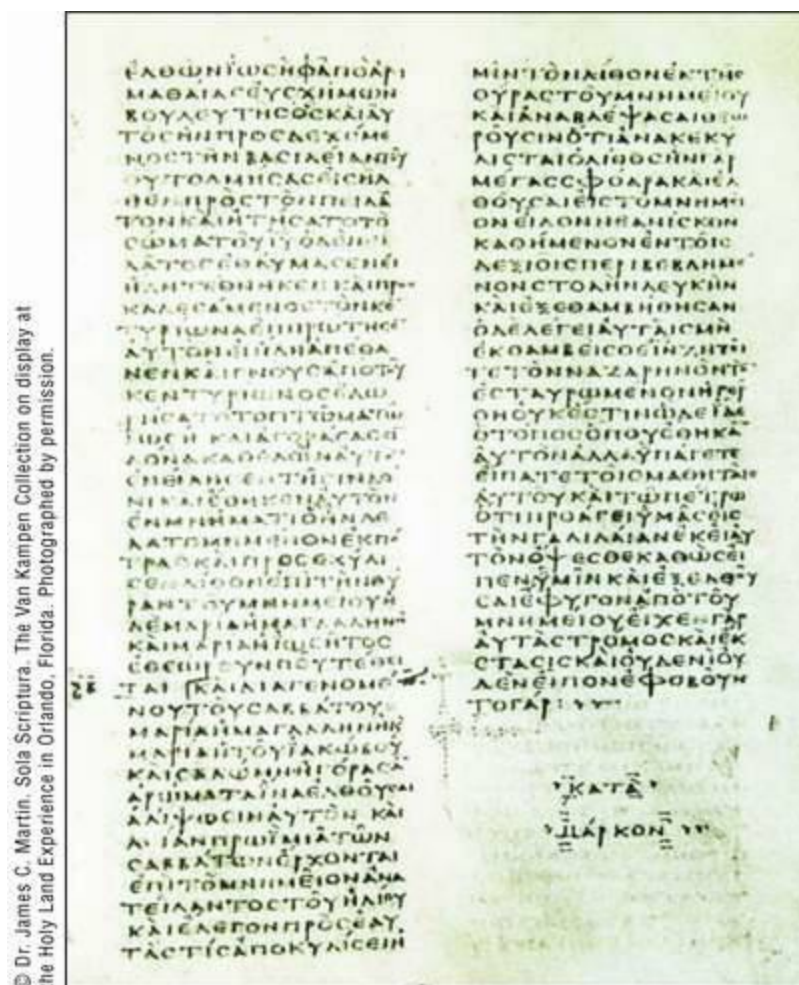 ΕΛΘΩΝΙΩϹΗΦΑΠΟΑΡΙ
ΜΑΘΑΙΑϹΕΥϹΧΗΜΩΝ
ΒΟΥΛΕΥΤΗϹΟϹΚΑΙΑΥ
ΤΟϹΗΝΠΡΟϹΔΕΧΟΜΕ
ΝΟϹΤΗΝΒΑϹΙΛΕΙΑΝΤΟΥ
ΘΥΤΟΛΜΗϹΑϹΕΙϹΗΛ
ΘΕΝΠΡΟϹΤΟΝΠΕΙΛΑ
ΤΟΝΚΑΙΗΤΗϹΑΤΟΤΟ
ϹΩΜΑΤΟΥΙΥΟΔΕΠΕΙ
ΛΑΤΟϹΕΘΑΥΜΑϹΕΝΕΙ
ΗΔΗΤΕΘΝΗΚΕΝΚΑΙΠΡΟϹ
ΚΑΛΕϹΑΜΕΝΟϹΤΟΝΚΕ
ΤΥΡΙΩΝΑΕΠΗΡΩΤΗϹΕ
ΑΥΤΟΝΕΙΗΔΗΑΠΕΘΑ
ΝΕΝΚΑΙΓΝΟΥϹΑΠΟΤΟΥ
ΚΕΝΤΥΡΙΩΝΟϹΕΔΩ
ΡΗϹΑΤΟΤΟΠΤΩΜΑΤΩ
ΙΩϹΗ ΚΑΙΑΓΟΡΑϹΑϹϹΙ
ΔΟΝΑΚΑΘΕΛΩΝΑΥΤΟ
ΕΝΕΙΛΗϹΕΝΤΗϹΙΝΔΟ
ΝΙΚΑΙΕΘΗΚΕΝΑΥΤΟΝ
ΕΝΜΝΗΜΑΤΙΟΗΝΛΕ
ΛΑΤΟΜΗΜΕΝΟΝΕΚΠΕ
ΤΡΑϹΚΑΙΠΡΟϹΕΚΥΛΙ
ϹΕΛΙΘΟΝΕΠΙΤΗΝΘΥ
ΡΑΝΤΟΥΜΝΗΜΕΙΟΥΗ
ΔΕΜΑΡΙΑΗΜΑΓΔΑΛΗΝΗ
ΚΑΙΜΑΡΙΑΗΙΩϹΗΤΟϹ
ΕΘΕΩΡΟΥΝΠΟΥΤΕΘΕΙ
ΤΑΙ ΚΑΙΔΙΑΓΕΝΟΜΕ
ΝΟΥΤΟΥϹΑΒΒΑΤΟΥ
ΜΑΡΙΑΗΜΑΓΔΑΛΗΝΗΚ
ΜΑΡΙΑΗΤΟΥΙΑΚΩΒΟΥ
ΚΑΙϹΑΛΩΜΗΗΓΟΡΑϹΑ
ΑΡΩΜΑΤΑΙΝΑΕΛΘΟΥϹΑΙ
ΑΛΙΨΩϹΙΝΑΥΤΟΝ ΚΑΙ
ΛΙΑΝΠΡΩΙΜΙΑΤΩΝ
ϹΑΒΒΑΤΩΝΕΡΧΟΝΤΑΙ
ΕΠΙΤΟΜΝΗΜΕΙΟΝΑΝΑ
ΤΕΙΛΑΝΤΟϹΤΟΥΗΛΙΟΥ
ΚΑΙΕΛΕΓΟΝΠΡΟϹΕΑΥ
ΤΑϹΤΙϹΑΠΟΚΥΛΙϹΕΙΗ
ΜΙΝΤΟΝΛΙΘΟΝΕΚΤΗϹ
ΘΥΡΑϹΤΟΥΜΝΗΜΕΙΟΥ
ΚΑΙΑΝΑΒΛΕΨΑϹΑΙΘΕΩ
ΡΟΥϹΙΝΟΤΙΑΝΑΚΕΚΥ
ΛΙϹΤΑΙΟΛΙΘΟϹΗΝΓΑΡ
ΜΕΓΑϹϹΦΟΔΡΑΚΑΙΕΛ
ΘΟΥϹΑΙΕΙϹΤΟΜΝΗΜΕΙ
ΟΝΕΙΔΟΝΝΕΑΝΙϹΚΟΝ
ΚΑΘΗΜΕΝΟΝΕΝΤΟΙϹ
ΔΕΞΙΟΙϹΠΕΡΙΒΕΒΛΗΜΕ
ΝΟΝϹΤΟΛΗΝΛΕΥΚΗΝ
ΚΑΙΕΞΕΘΑΜΒΗΘΗϹΑΝ
ΟΔΕΛΕΓΕΙΑΥΤΑΙϹΜΗ
ΕΚΘΑΜΒΕΙϹΘΕΙΝΖΗΤΕΙ
ΤΕΤΟΝΝΑΖΑΡΗΝΟΝΤΟ
ΕϹΤΑΥΡΩΜΕΝΟΝΗΓΕΡ
ΘΗΟΥΚΕϹΤΙΝΩΔΕΙΔΕ
ΟΤΟΠΟϹΟΠΟΥΕΘΗΚΑ
ΑΥΤΟΝΑΛΛΑΥΠΑΓΕΤΕ
ΕΙΠΑΤΕΤΟΙϹΜΑΘΗΤΑΙϹ
ΑΥΤΟΥΚΑΙΤΩΠΕΤΡΩ
ΟΤΙΠΡΟΑΓΕΙΥΜΑϹΕΙϹ
ΤΗΝΓΑΛΙΛΑΙΑΝΕΚΕΙΑΥ
ΤΟΝΟΨΕϹΘΕΚΑΘΩϹΕΙ
ΠΕΝΥΜΙΝΚΑΙΕΞΕΛΘΟΥ
ϹΑΙΕΦΥΓΟΝΑΠΟΤΟΥ
ΜΝΗΜΕΙΟΥΕΙΧΕΝΓΑΡ
ΑΥΤΑϹΤΡΟΜΟϹΚΑΙΕΚ
ϹΤΑϹΙϹΚΑΙΟΥΔΕΝΙΟΥ
ΔΕΝΕΙΠΟΝΕΦΟΒΟΥΝ
ΤΟΓΑΡ:
ΚΑΤΑ
ΜΑΡΚΟΝ
© Dr. James C. Martin. Sola Scriptura. The Van Kampen Collection on display at
the Holy Land Experience in Orlando, Florida. Photographed by permission.